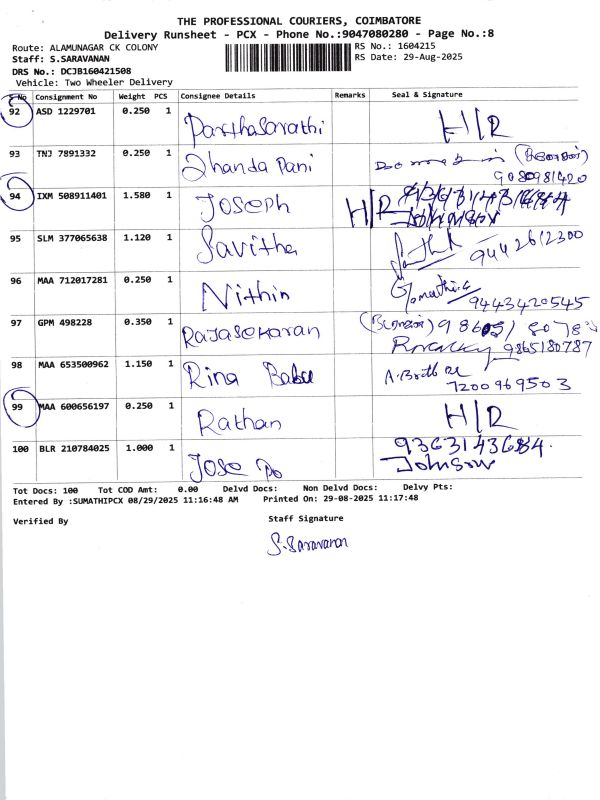 THE PROFESSIONAL COURIERS, COIMBATORE
Delivery Runsheet - PCX - Phone No.:9047080280 - Page No.:8
Route: ALAMUNAGAR CK COLONY RS No.: 1604215
Staff: S.SARAVANAN RS Date: 29-Aug-2025
DRS No.: DCJB160421508
Vehicle: Two Wheeler Delivery
S No Consignment No Weight PCS Consignee Details Remarks Seal & Signature
92 ASD 1229701 0.250 1 Parthasarathi H/R
93 TNJ 7891332 0.250 1 Dhanda Pani
9080981420
94 IXM 508911401 1.580 1 Joseph H/R
95 SLM 377065638 1.120 1 Savitha 9442612300
96 MAA 712017281 0.250 1 Nithin Gomathi.a
9443420545
97 GPM 498228 0.350 1 Rajasekaran
9865180787
98 MAA 653500962 1.150 1 Rina Babu
7200969503
99 MAA 600656197 0.250 1 Rathan H/R
100 BLR 210784025 1.000 1 Jose Po 9363143684.
Johnson
Tot Docs: 100 Tot COD Amt: 0.00 Delvd Docs: Non Delvd Docs: Delvy Pts:
Entered By :SUMATHIPCX 08/29/2025 11:16:48 AM Printed On: 29-08-2025 11:17:48
Verified By Staff Signature
S.Saravanan